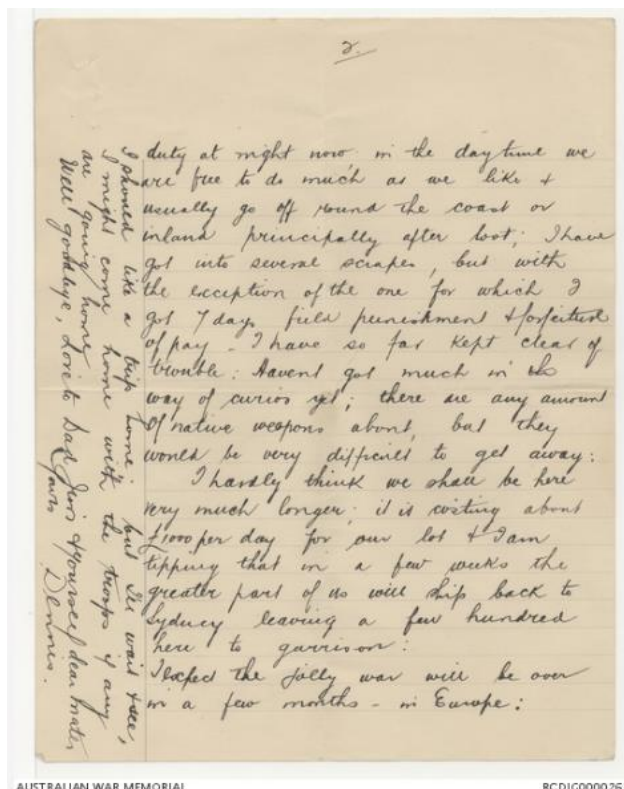 2.
duty at night now, in the daytime we
are free to do much as we like &
usually go off round the coast or
inland principally after loot; I have
got into several scrapes, but with
the exception of the one for which I
got 7 days field punishment & forfeiture
of pay - I have so far kept clear of
trouble: Havent got much in the
way of curios yet; there are any amount
of native weapons about, but they
would be very difficult to get away:
I hardly think we shall be here
very much longer; it is costing about
£1000 per day for our lot & I am
tipping that in a few weeks the
greater part of us will ship back to
Sydney leaving a few hundred
here to garrison:
I expect the jolly war will be over
in a few months - in Europe:
I should like a trip home: but I'll wait & see,
I might come home with the troops if any
are going home
Well goodbye, Love to Dad, & yourself dear Mater
Yours
Dennis.
AUSTRALIAN WAR MEMORIAL
RCDIG000026